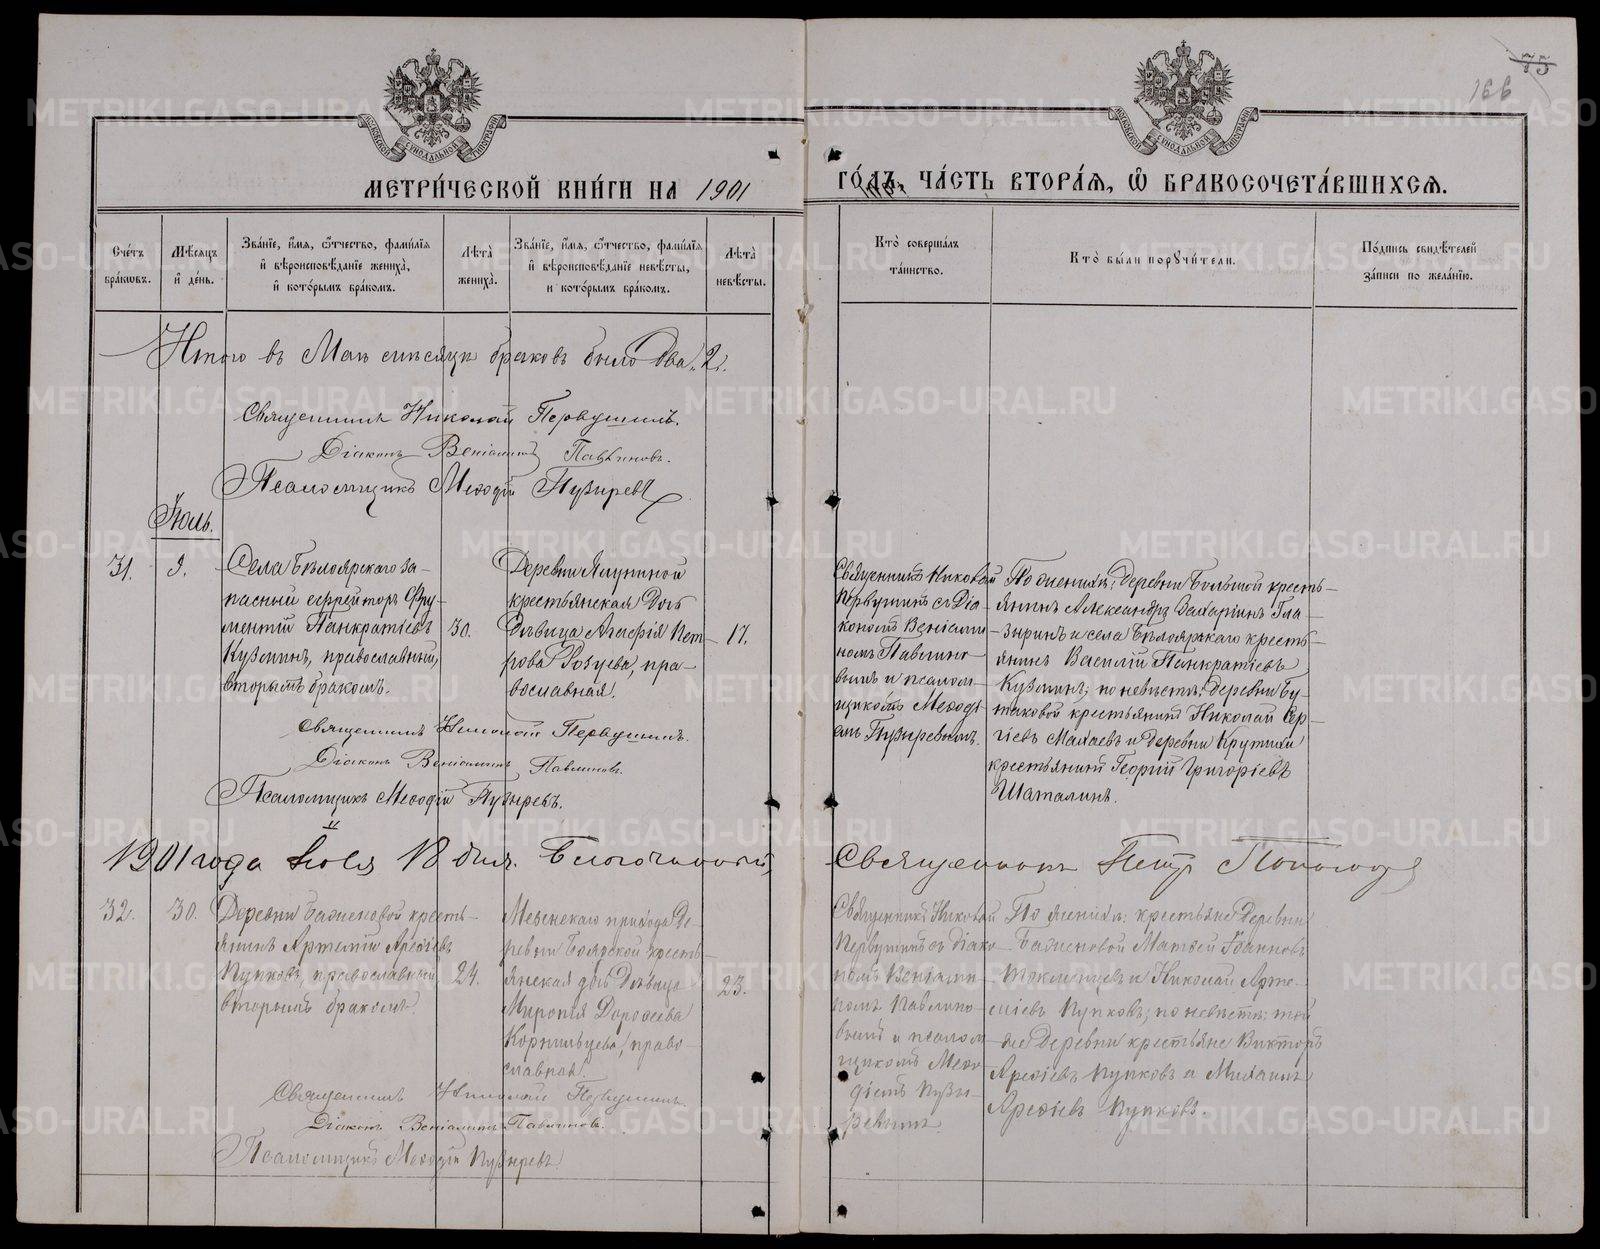 МОСКОВСКОЙ СѴНОДАЛЬНОЙ ТИПОГРАФІИ
МОСКОВСКОЙ СѴНОДАЛЬНОЙ ТИПОГРАФІИ
75
166
МЕТРИ́ЧЕСКОЙ КНИ́ГИ НА 1901
ГО́ДЪ, ЧА́СТЬ ВТОРА́Я, Ѽ БРАКОСОЧЕТА́ВШИХСЯ.
Сче́тъ бра́ковъ.
Мѣ́сяцъ и҆ де́нь.
Зва́нїе, и҆́мя, ѻ҆́тчество, фами́лїя и҆ вѣроисповѣ́данїе жениха̀, и҆ кото́рымъ бра́комъ.
Лѣ́та жениха̀.
Зва́нїе, и҆́мя, ѻ҆́тчество, фами́лїя и҆ вѣроисповѣ́данїе невѣ́сты, и҆ кото́рымъ бра́комъ.
Лѣ́та невѣ́сты.
Кто̀ соверша́лъ та́инство.
Кто̀ бы́ли порꙋчи́тели.
По́дпись свидѣ́телей за́писи по жела́нїю.
Итого въ Маѣ мѣсяцѣ браковъ было два „2„.
Священникъ Николай Первушинъ.
Діаконъ Веніаминъ Павлиновъ.
Псаломщикъ Меѳодій Пузыревъ
Іюль.
31.
9.
Села Бѣлоярскаго за-
пасный ефрейторъ Фру-
ментій Панкратіевъ
Кузминъ, православный,
вторымъ бракомъ.
30.
Деревни Ялуниной
крестьянская дочь
дѣвица Агафія Пет-
рова Рогуева, пра-
вославная.
17.
Священникъ Николай
Первушинъ съ діа-
кономъ Веніами-
номъ Павлино-
вымъ и псалом-
щикомъ Меѳоді-
емъ Пузыревымъ.
По женихѣ: деревни Большой кресть-
янинъ Александръ Захаринъ Гла-
зыринъ и села Бѣлоярскаго кресть-
янинъ Василій Панкратіевъ
Кузминъ; по невѣстѣ: деревни Бу-
таковой крестьянинъ Николай Сер-
гіевъ Махаевъ и деревни Крутихи
крестьянинъ Георгій Григоріевъ
Шаталинъ.
Священникъ Николай Первушинъ.
Діаконъ Веніаминъ Павлиновъ.
Псаломщикъ Меѳодій Пузыревъ.
1901 года Іюля 18 дня. Благочинный
Священникъ Петръ
32.
30.
Деревни Баженовой кресть-
янинъ Артемій Арефіевъ
Пупковъ, православный
вторымъ бракомъ.
24.
Мезенскаго прихода де-
ревни Боярской кресть-
янская дочь дѣвица
Миропія Дорофеева
Корнильцева, право-
славная.
23.
Священникъ Николай
Первушинъ съ діако-
номъ Веніами-
номъ Павлино-
вымъ и псалом-
щикомъ Меѳо-
діемъ Пузы-
ревымъ.
По женихѣ: крестьяне деревни
Баженовой Матѳей Іоанновъ
и Николай Арте-
міевъ Пупковъ; по невѣстѣ: той
же деревни крестьяне Викторъ
Арефіевъ Пупковъ и Михаилъ
Арефіевъ Пупковъ.
Священникъ Николай Первушинъ.
Діаконъ Веніаминъ Павлиновъ.
Псаломщикъ Меѳодій Пузыревъ.
METRIKI.GASO-URAL.RU